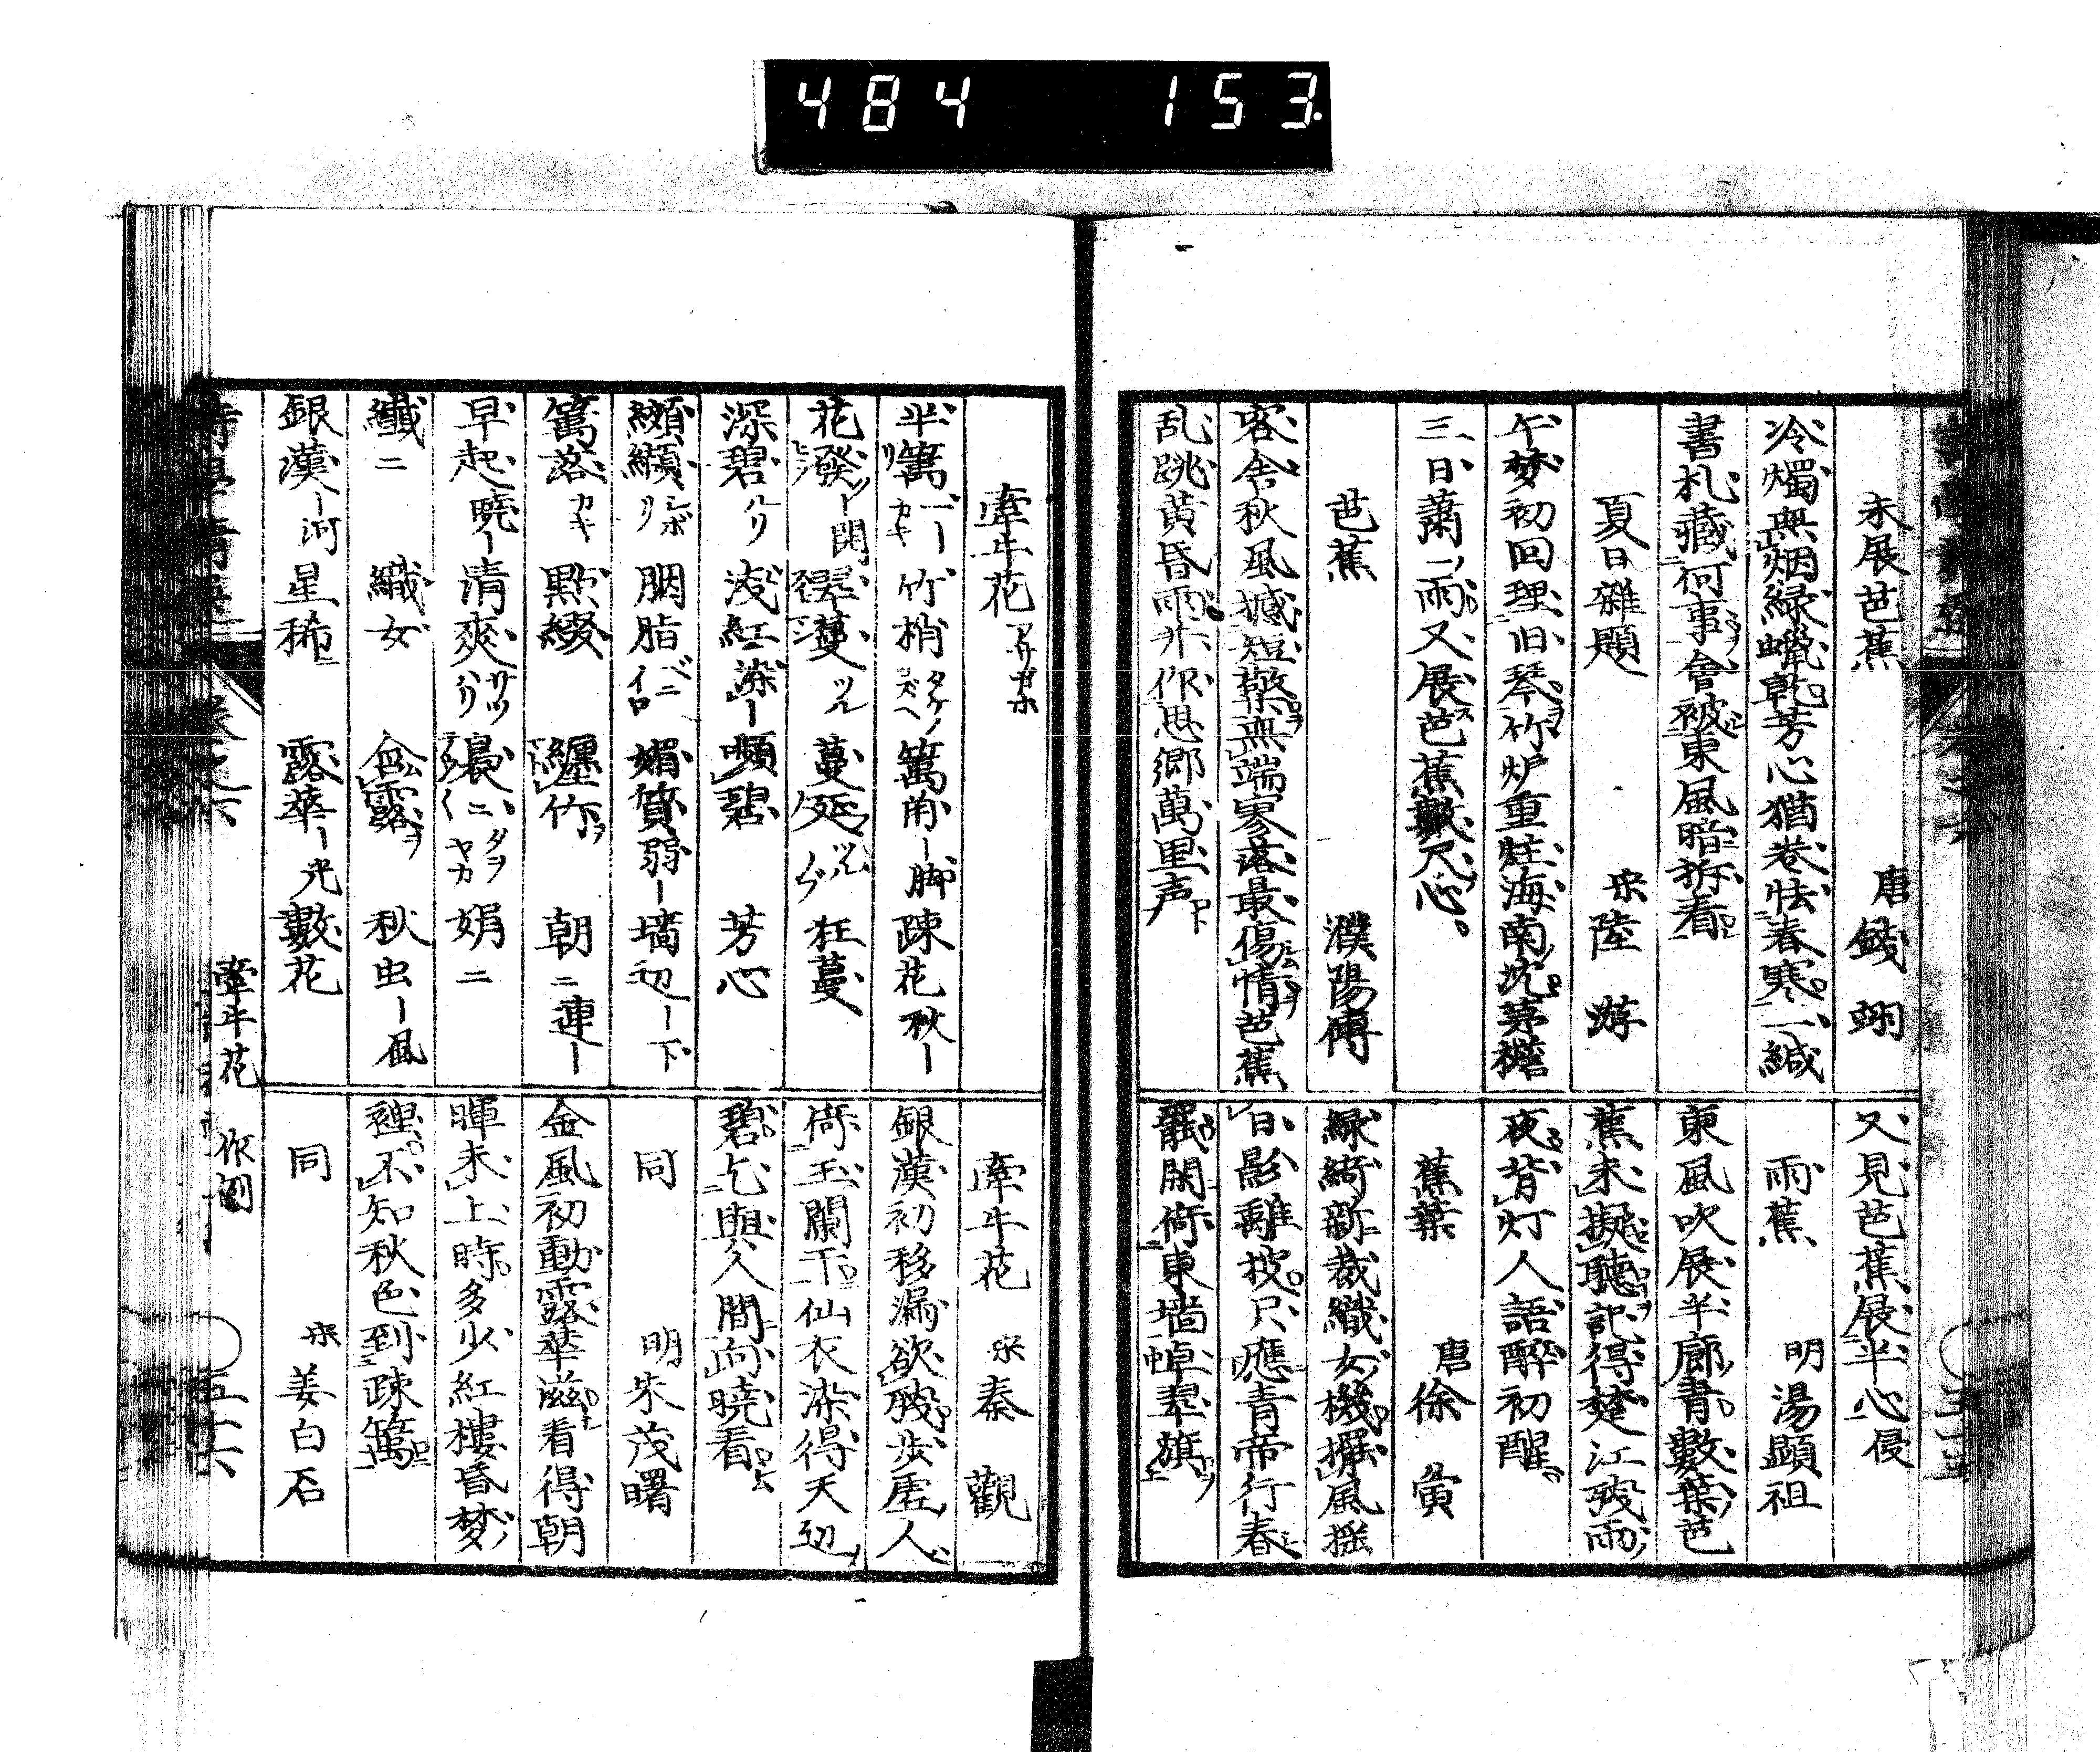 484 153
未展芭蕉 唐 錢 翊
冷燭無烟緑蠟乾芳心猶巻怯春寒一緘
書札藏何事會被東風暗拆看
夏日雜題 宋 陸 游
午梦初回理旧琴竹炉重炷海南沈茅檐
三日蕭〻雨又展芭蕉數尺心
芭蕉 濮陽傅
客舎秋風撼短檠無端寥落最傷情芭蕉
乱跳黄昏雨作思郷萬里声
又見芭蕉展半心侵
雨蕉 明 湯顕祖
東風吹展半廊青數葉芭
蕉未擬聴記得楚江残雨
夜背灯人語酔初醒
蕉葉 唐 徐 夤
緑綺新裁織女機擺風揺
日影離披只應青帝行春
罷閑倚東墻卓翠旗
牽牛花 アサガホ
半籬 カキ 竹梢 タケノ 籬角ー脚 疎花 秋ー
花發ー開 翠蔓 ツル 蔓延 狂蔓
深碧 浅紅 染ー 嫩碧 芳心
纈纈 シボリ 胭脂 ベニイロ 媚質弱ー 墻辺ー下
籬落 カキ 點綴 纏竹ヲ 朝ニ連ー
早起 暁ー 清爽 サツハリ 裊ニ タヲヤカ 娟ニ
纖ニ 織女 含露ヲ 秋虫ー風
銀漢ー河 星稀 露華ー光 數花
牽牛花 宋 秦 觀
銀漢初移漏欲殘歩虚人
倚玉闌干仙衣染得天辺
碧乞與人間向暁看
同 明 朱茂曙
金風初動露華滋看得朝
暉未上時多少紅樓昏梦
裡不知秋色到疎籬
同 宋 姜白石
牽牛花 作例
五十六